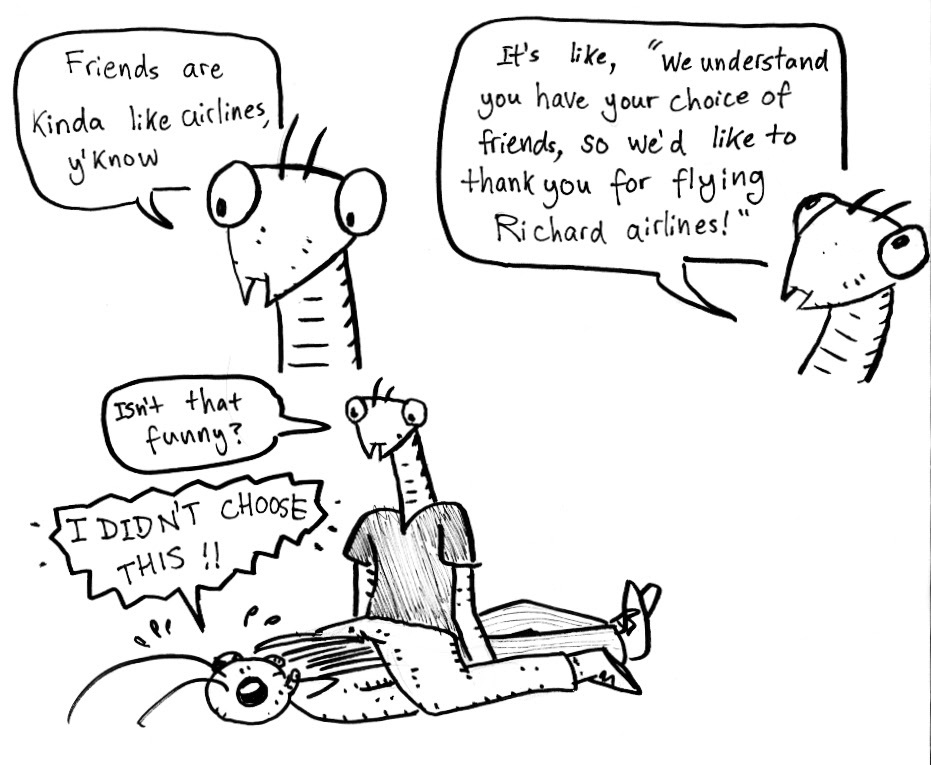 Friends are
Kinda like airlines,
y'know
It's like, "We understand
you have your choice of
friends, so we'd like to
thank you for flying
Richard airlines!"
Isn't that
funny?
I DIDN'T CHOOSE
THIS !!